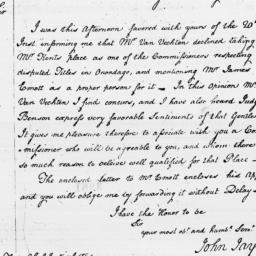 I was this Afternoon favored with yours of the
Inst informing me that Mr. Van Vechten declined taking
Mr. Kents place as one of the Commissioners respecting
disputed Titles in Onondaga, and mentioning Mr. James
Emott as a proper person for it — In this opinion Mr.
Van Vechten I find concurs, and I have also heard Judge
Benson express very favorable Sentiments of that Gentle
It gives me pleasure therefore to associate with you a Com
missioner who will be agreeable to you, and whom there
so much reason to believe well qualified for that Place —
The enclosed letter to Mr. Emott encloses his
and you will oblige me by forwarding it without Delay
I have the Honor to be
Sir
your most obt. and humb. Servt.
John Jay